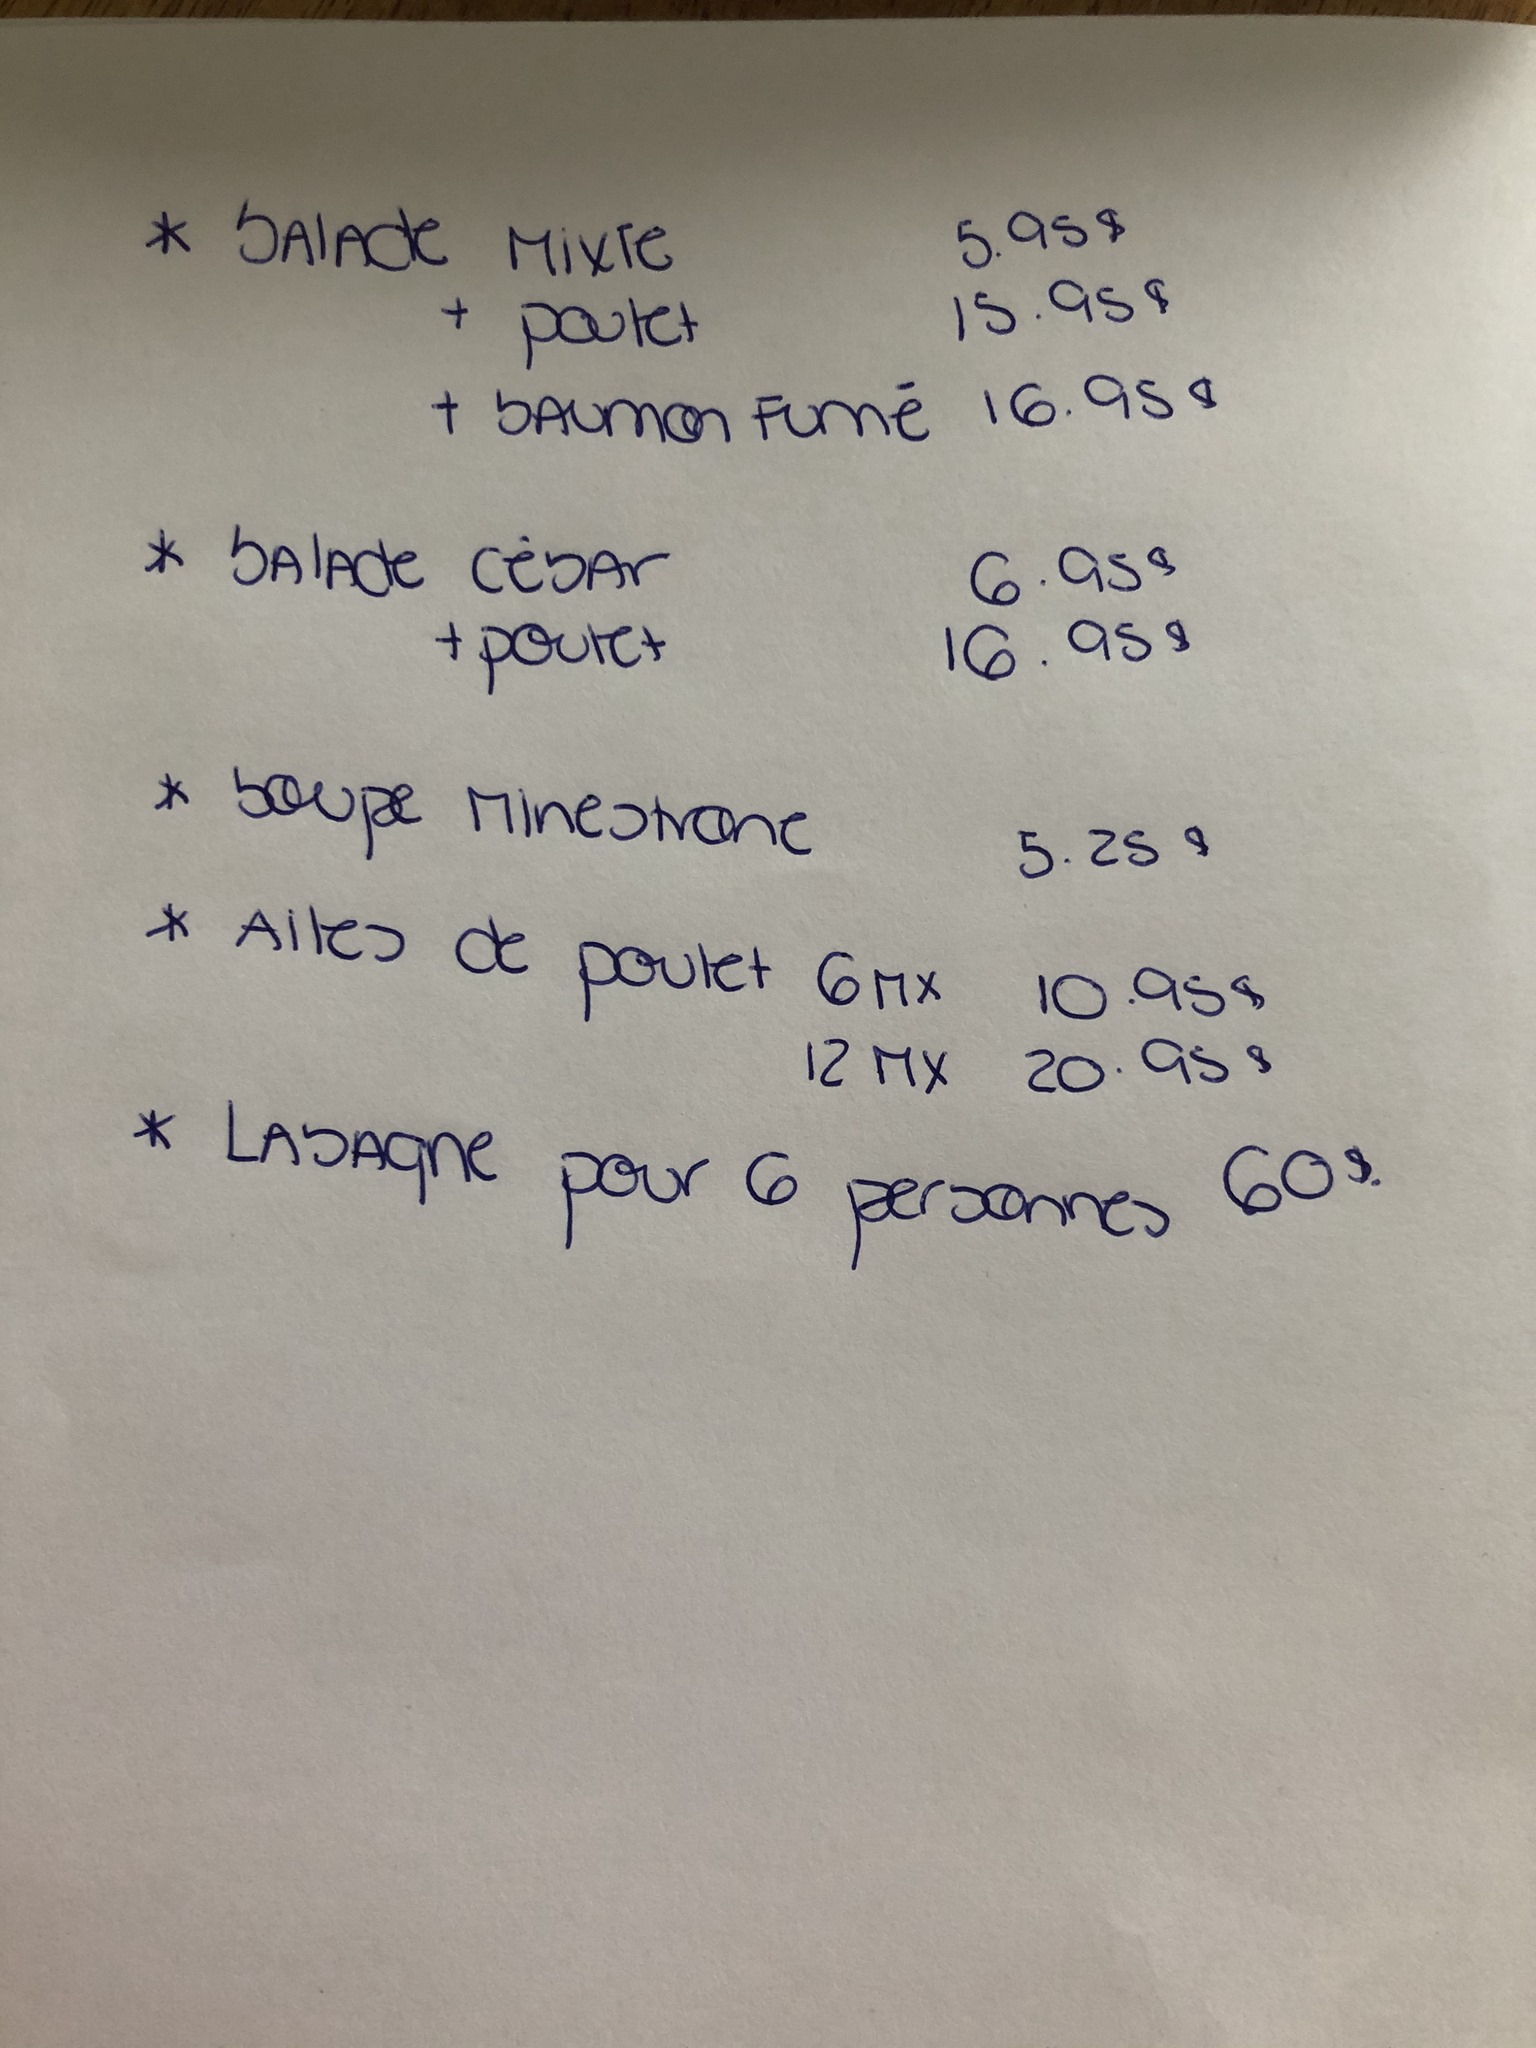 * Salade Mixte 5.95$
+ poulet 15.95$
+ saumon Fumé 16.95$
* Salade César 6.95$
+ poulet 16.95$
* Soupe Minestrone 5.25$
* Ailes de poulet 6 MX 10.95$
12 MX 20.95$
* Lasagne pour 6 personnes 60$.